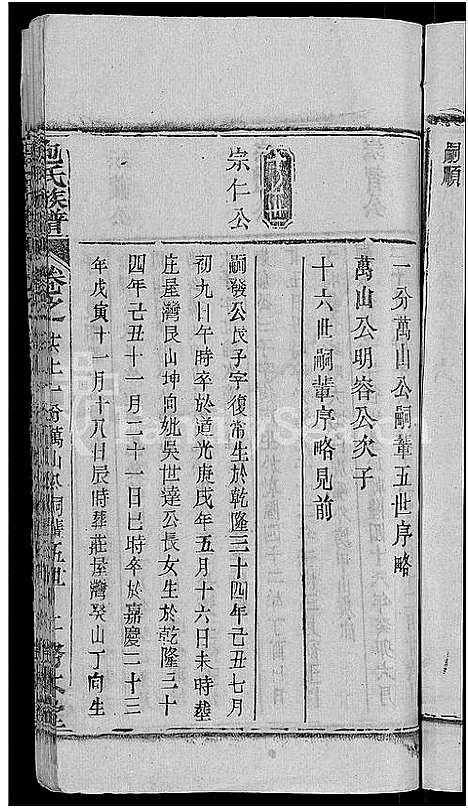 嗣順
一分萬山公嗣輩五世序略
萬山公明容公次子
十六世嗣輩序略見前
宗仁公
嗣發公次子字復常生於乾隆三十四年己丑七月
初九日午時卒於道光庚戌年五月十六日未時塟
庄屋灣艮山坤向妣吳世達公長女生於乾隆三十
四年己丑十一月二十一日巳時卒於嘉慶二十三
年戊寅十一月十八日辰時葬莊屋灣癸山丁向生
氏族譜
卷之
萬山公嗣輩五世